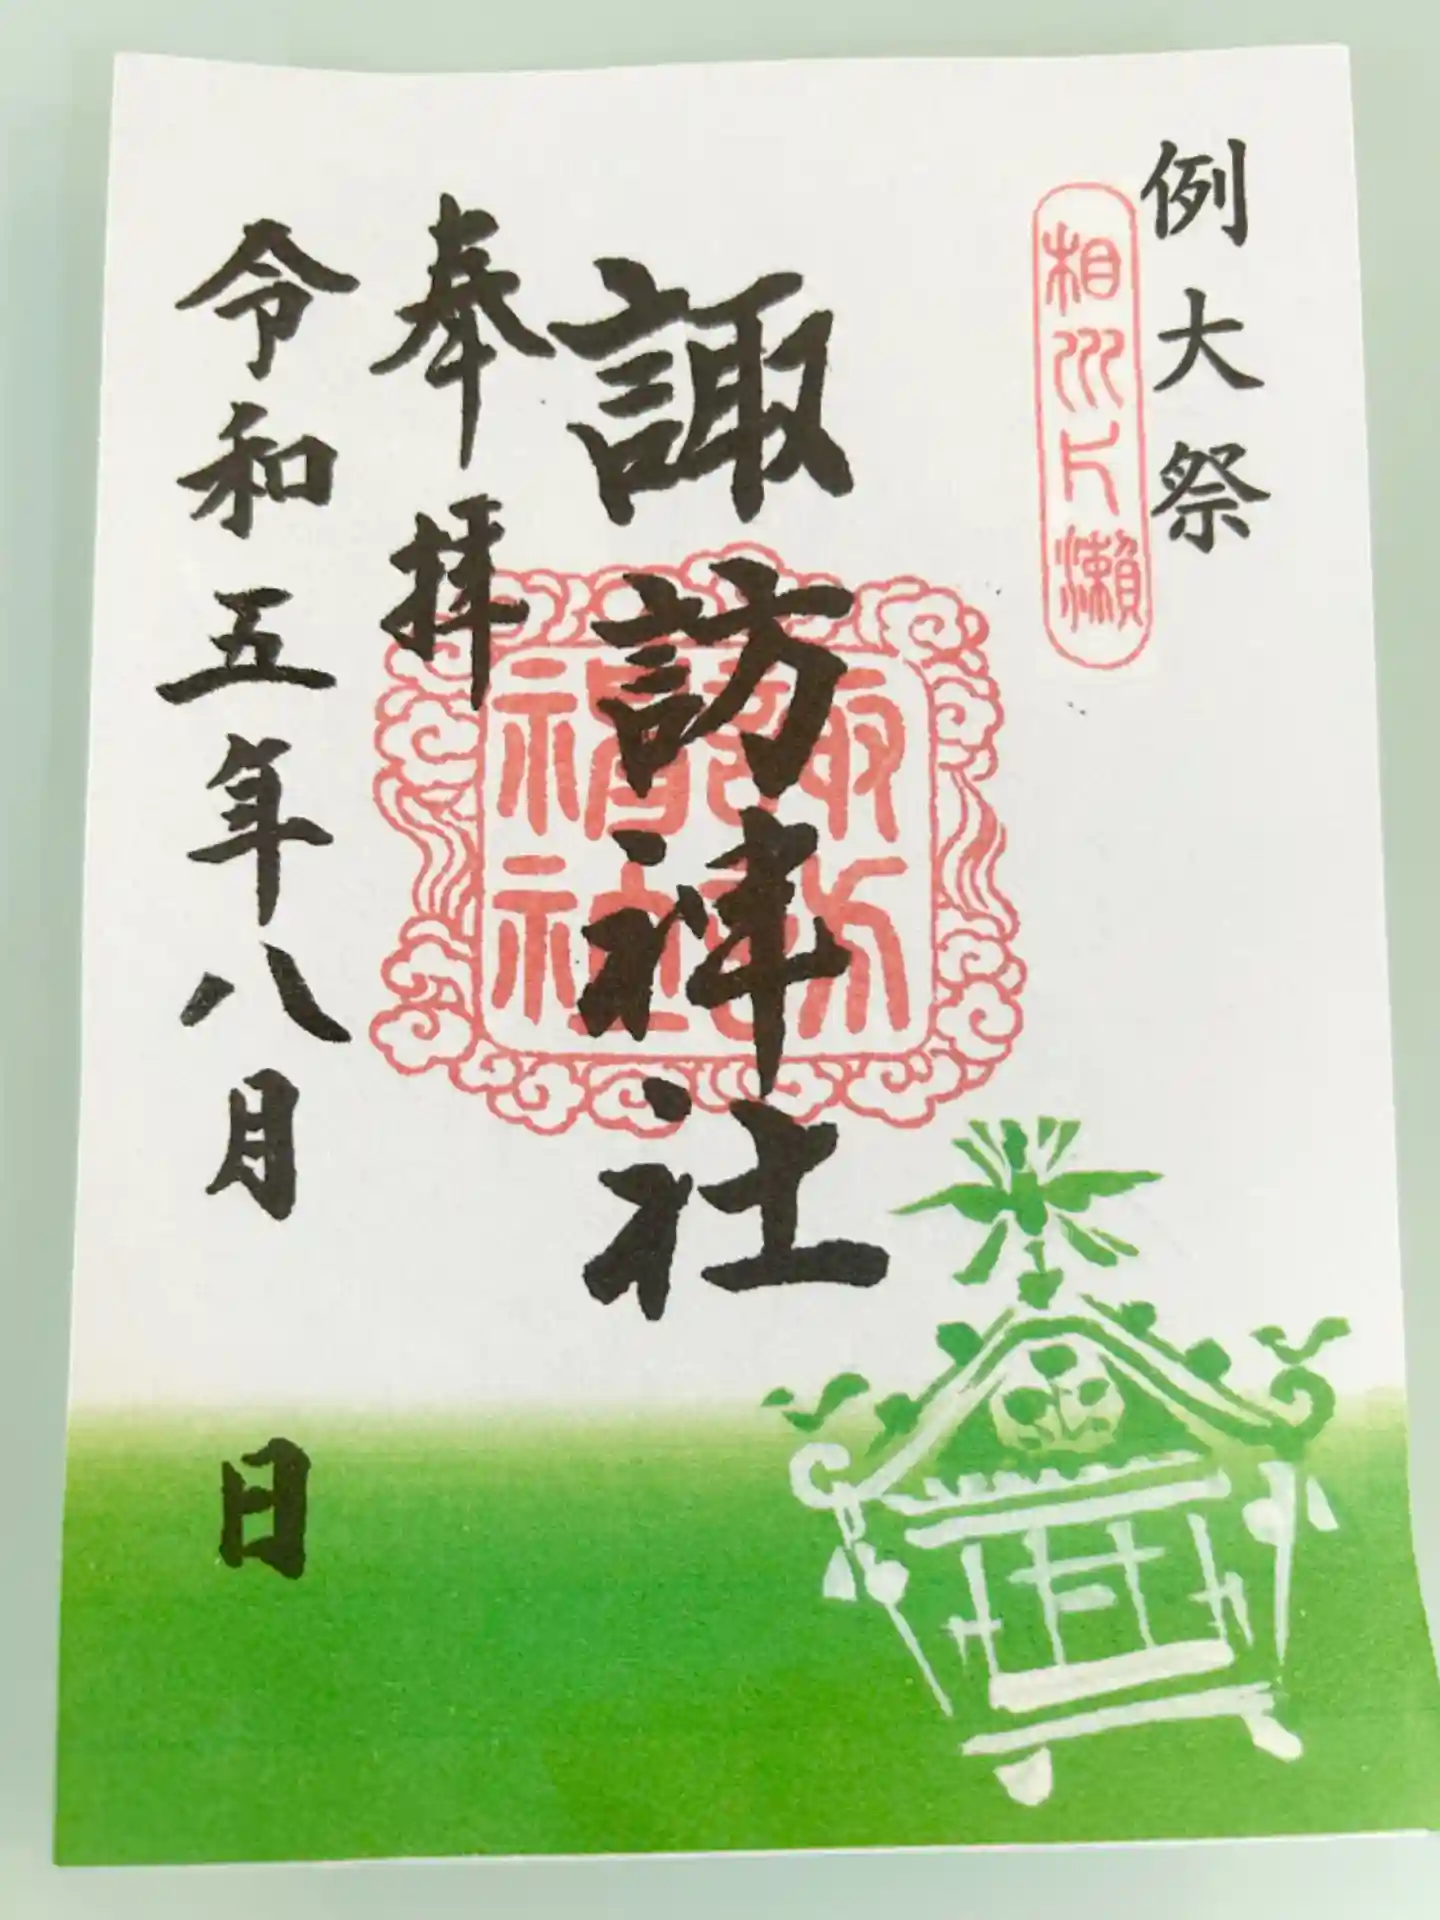 例大祭
相州片瀬
諏訪神社
諏訪神社
奉拝
令和五年八月 日